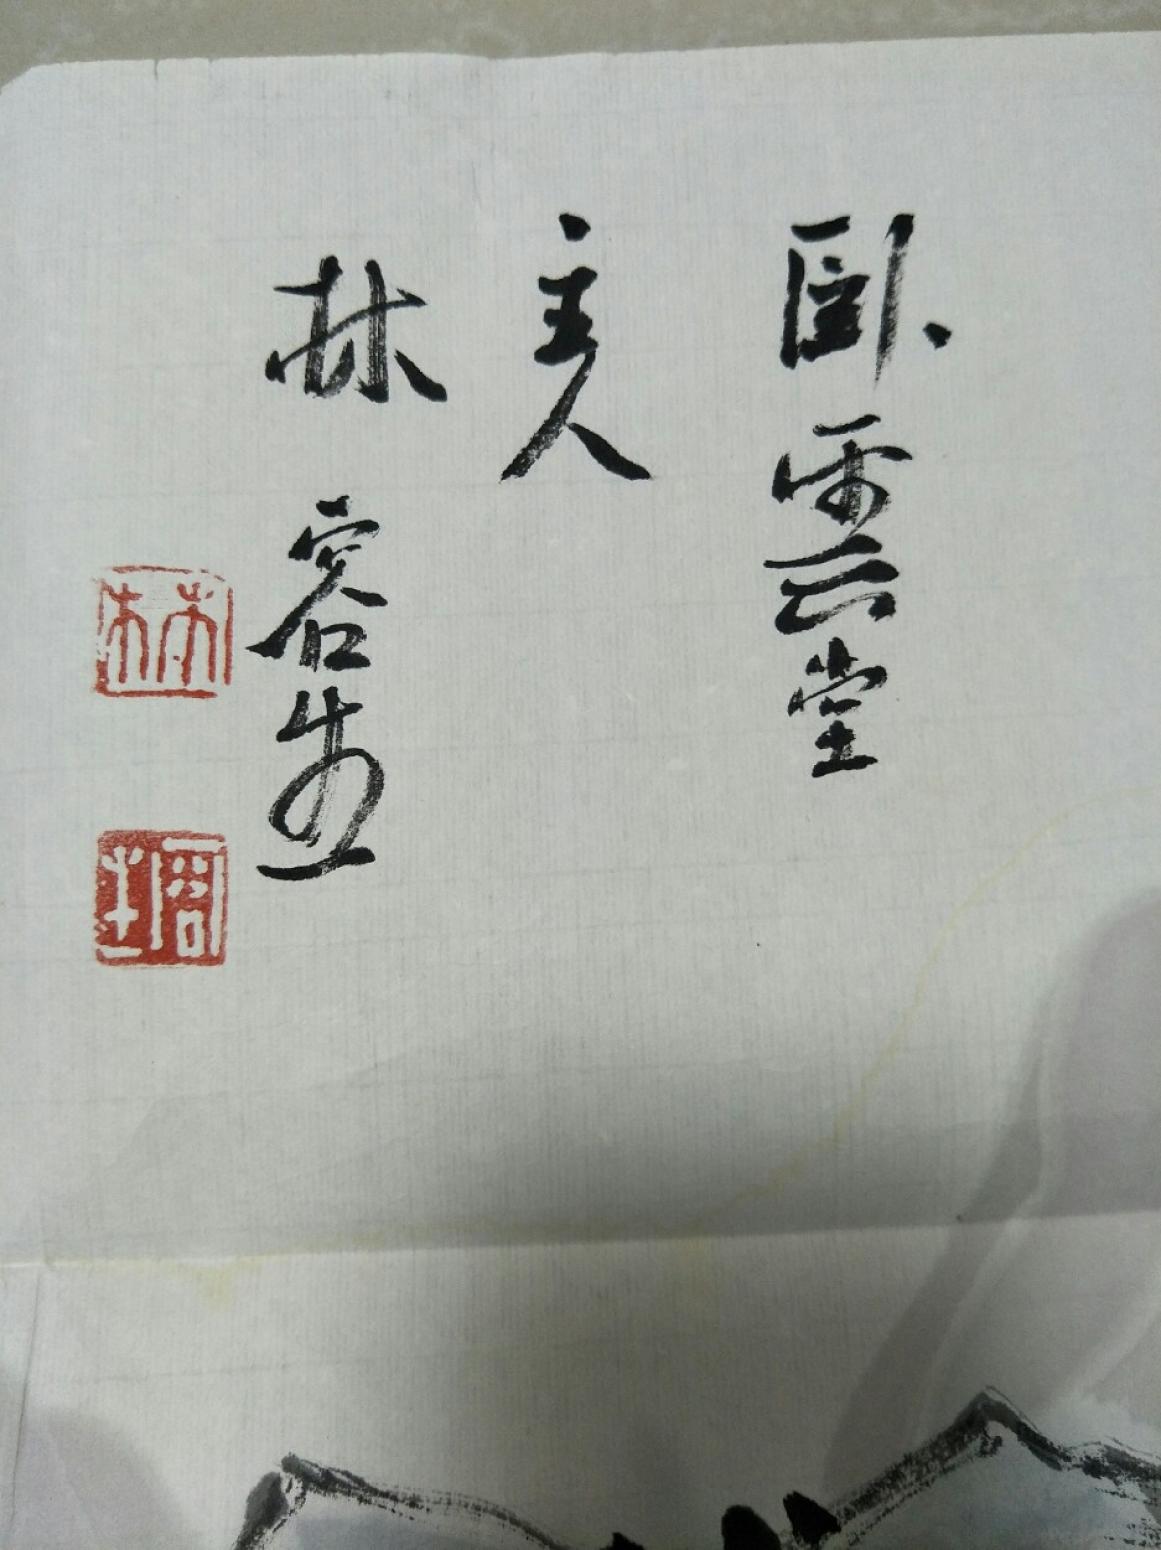 卧雲堂
主人
林容生
林
容生